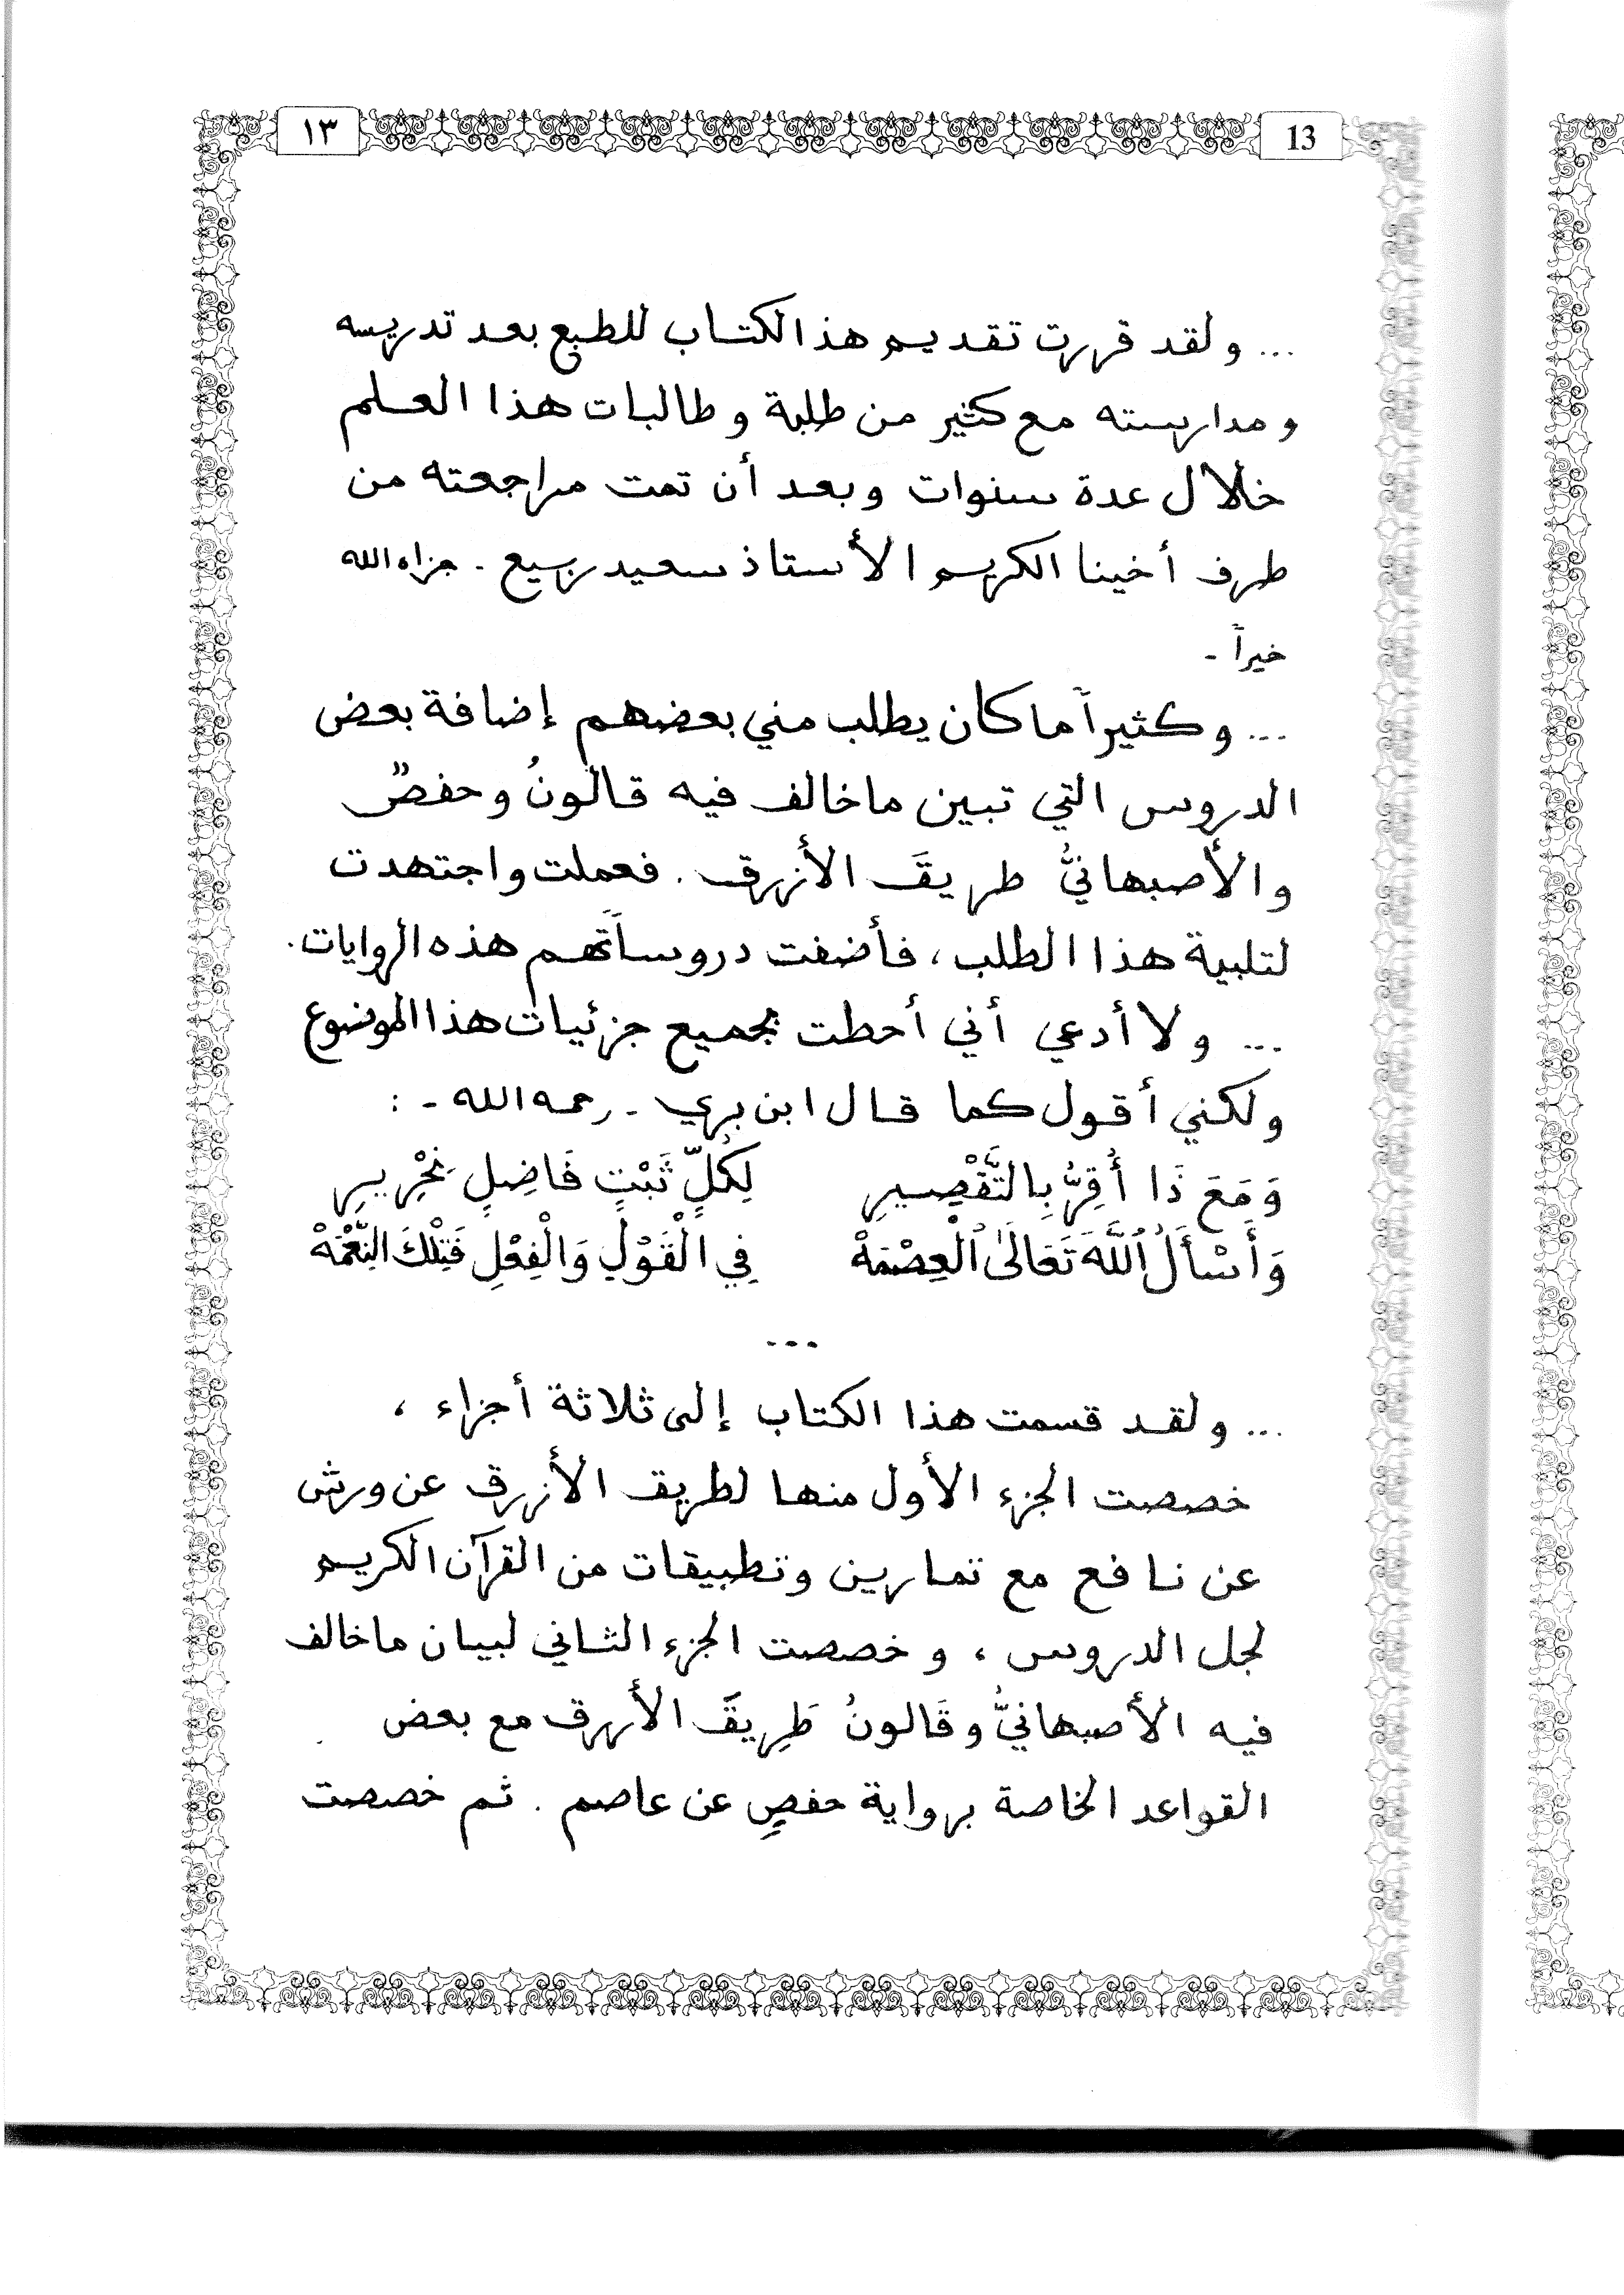 ١٣ 13
... ولقد قررت تقديم هذا الكتاب للطبع بعد تدريسه
ومدارسته مع كثير من طلبة وطالبات هذا العلم
خلال عدة سنوات وبعد أن تمت مراجعته من
طرف أخينا الكريم الأستاذ سعيد ربيع - جزاه الله
خيراً -
... وكثيراً ما كان يطلب مني بعضهم إضافة بعض
الدروس التي تبين ما خالف فيه قالونُ وحفصٌ
والأصبهانيُّ طريقَ الأزرق. فعملت واجتهدت
لتلبية هذا الطلب، فأضفت دروساً تهم هذه الروايات.
... ولا أدعي أني أحطت بجميع جزئيات هذا الموضوع
ولكني أقول كما قال ابن بري - رحمه الله - :
وَمَعَ ذَا أُقِرُّ بِالتَّقْصِيرِ لِكُلِّ ثَبْتٍ فَاضِلٍ نِحْرِيرِ
وَأَسْأَلُ ٱللَّهَ تَعَالَىٰ ٱلْعِصْمَهْ فِي الْقَوْلِ وَالْفِعْلِ فَتِلْكَ النِّعْمَهْ
...
... ولقد قسمت هذا الكتاب إلى ثلاثة أجزاء ،
خصصت الجزء الأول منها لطريق الأزرق عن ورش
عن نافع مع تمارين وتطبيقات من القرآن الكريم
لجل الدروس ، وخصصت الجزء الثاني لبيان ما خالف
فيه الأصبهانيُّ وقَالونُ طَرِيقَ الأزرق مع بعض
القواعد الخاصة برواية حفصٍ عن عاصم . ثم خصصت